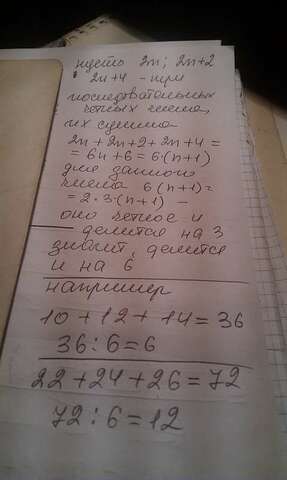 пусть 2n; 2n+2
2n+4 - три
последовательных
четных числа,
их сумма
2n+2n+2+2n+4=
=6n+6=6·(n+1)
для данного
числа 6(n+1)=
=2·3·(n+1) -
оно четное и
делится на 3
значит, делится
и на 6
например
10+12+14=36
36:6=6
22+24+26=72
72:6=12